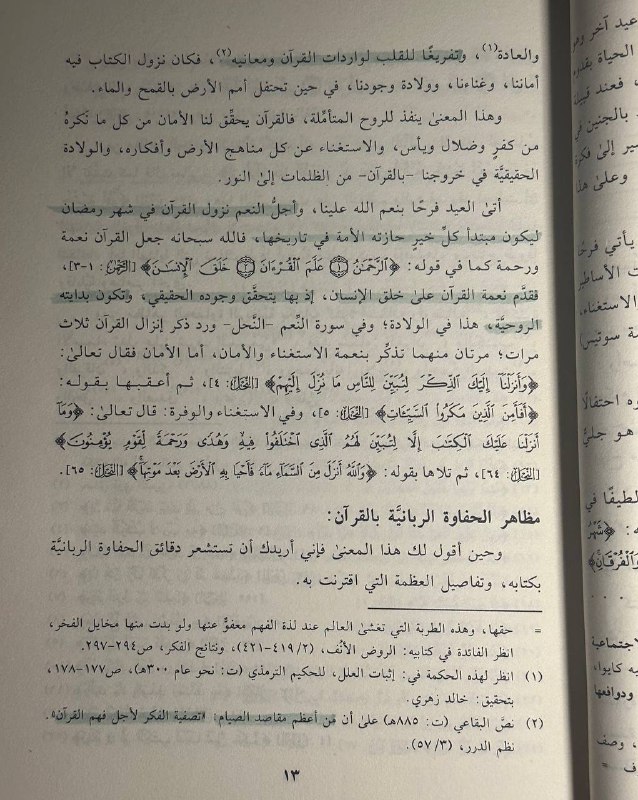 والعادة(١)، وتفريغًا للقلب لواردات القرآن ومعانيه(٢)، فكان نزول الكتاب فيه
أماننا، وغناءنا، وولادة وجودنا، في حين تحتفل أمم الأرض بالقمح والماء.
وهذا المعنىٰ ينفذ للروح المتأمِّلة، فالقرآن يحقِّق لنا الأمان من كل ما نَكرهُ
من كفرٍ وضلال ويأس، والاستغناء عن كل مناهج الأرض وأفكاره، والولادة
الحقيقيَّة في خروجنا -بالقرآن- من الظلمات إلىٰ النور.
أتىٰ العيد فرحًا بنعم الله علينا، وأجلُّ النعم نزول القرآن في شهر رمضان
ليكون مبتدأ كلِّ خيرٍ حازته الأمة في تاريخها، فالله سبحانه جعل القرآن نعمة
ورحمة كما في قوله: ﴿ٱلرَّحْمَٰنُ ۝١ عَلَّمَ ٱلْقُرْءَانَ ۝٢ خَلَقَ ٱلْإِنسَٰنَ﴾ [الرحمن: ١-٣]،
فقدَّم نعمة القرآن علىٰ خلق الإنسان، إذ بها يتحقَّق وجوده الحقيقي، وتكون بدايته
الروحيَّة، هذا في الولادة؛ وفي سورة النِّعم -النَّحل- ورد ذكر إنزال القرآن ثلاث
مرات؛ مرتان منهما تذكِّر بنعمة الاستغناء والأمان، أما الأمان فقال تعالىٰ:
﴿وَأَنزَلْنَآ إِلَيْكَ ٱلذِّكْرَ لِتُبَيِّنَ لِلنَّاسِ مَا نُزِّلَ إِلَيْهِمْ﴾ [النحل: ٤]، ثم أعقبها بقوله:
﴿أَفَأَمِنَ ٱلَّذِينَ مَكَرُوا۟ ٱلسَّيِّـَٔاتِ﴾ [النحل: ٥]، وفي الاستغناء والوفرة: قال تعالىٰ: ﴿وَمَآ
أَنزَلْنَا عَلَيْكَ ٱلْكِتَٰبَ إِلَّا لِتُبَيِّنَ لَهُمُ ٱلَّذِى ٱخْتَلَفُوا۟ فِيهِ وَهُدًى وَرَحْمَةً لِّقَوْمٍ يُؤْمِنُونَ﴾
[النحل: ٦٤]، ثم تلاها بقوله: ﴿وَٱللَّهُ أَنزَلَ مِنَ ٱلسَّمَآءِ مَآءً فَأَحْيَا بِهِ ٱلْأَرْضَ بَعْدَ مَوْتِهَآ﴾ [النحل: ٦٥].
مظاهر الحفاوة الربانيَّة بالقرآن:
وحين أقول لك هذا المعنىٰ فإني أريدك أن تستشعر دقائق الحفاوة الربانيَّة
بكتابه، وتفاصيل العظمة التي اقترنت به.
= حقها، وهذه الطربة التي تغشىٰ العالم عند لذة الفهم معفوٌّ عنها ولو بدت منها مخايل الفخر،
انظر الفائدة في كتابيه: الروض الأنف، (٤١٩/٢-٤٢١)، ونتائج الفكر، ص٢٩٤-٢٩٧.
(١) انظر لهذه الحكمة في: إثبات العلل، للحكيم الترمذي (ت: نحو عام ٣٠٠هـ)، ص١٧٧-١٧٨،
بتحقيق: خالد زهري.
(٢) نصَّ البقاعي (ت: ٨٨٥هـ) علىٰ أن من أعظم مقاصد الصيام: «تصفية الفكر لأجل فهم القرآن».
نظم الدرر، (٥٧/٣).
١٣